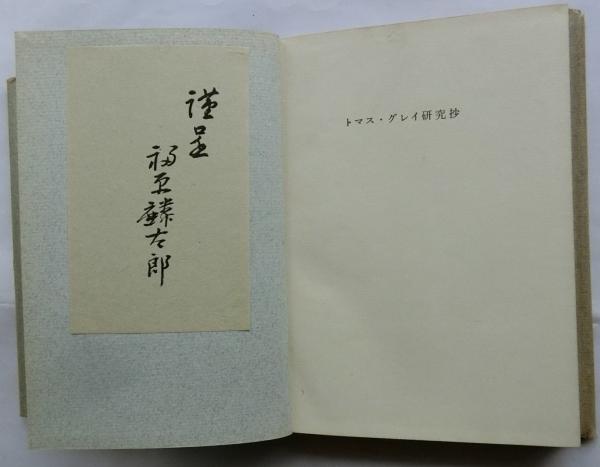 謹呈
福原麟太郎
トマス・グレイ研究抄